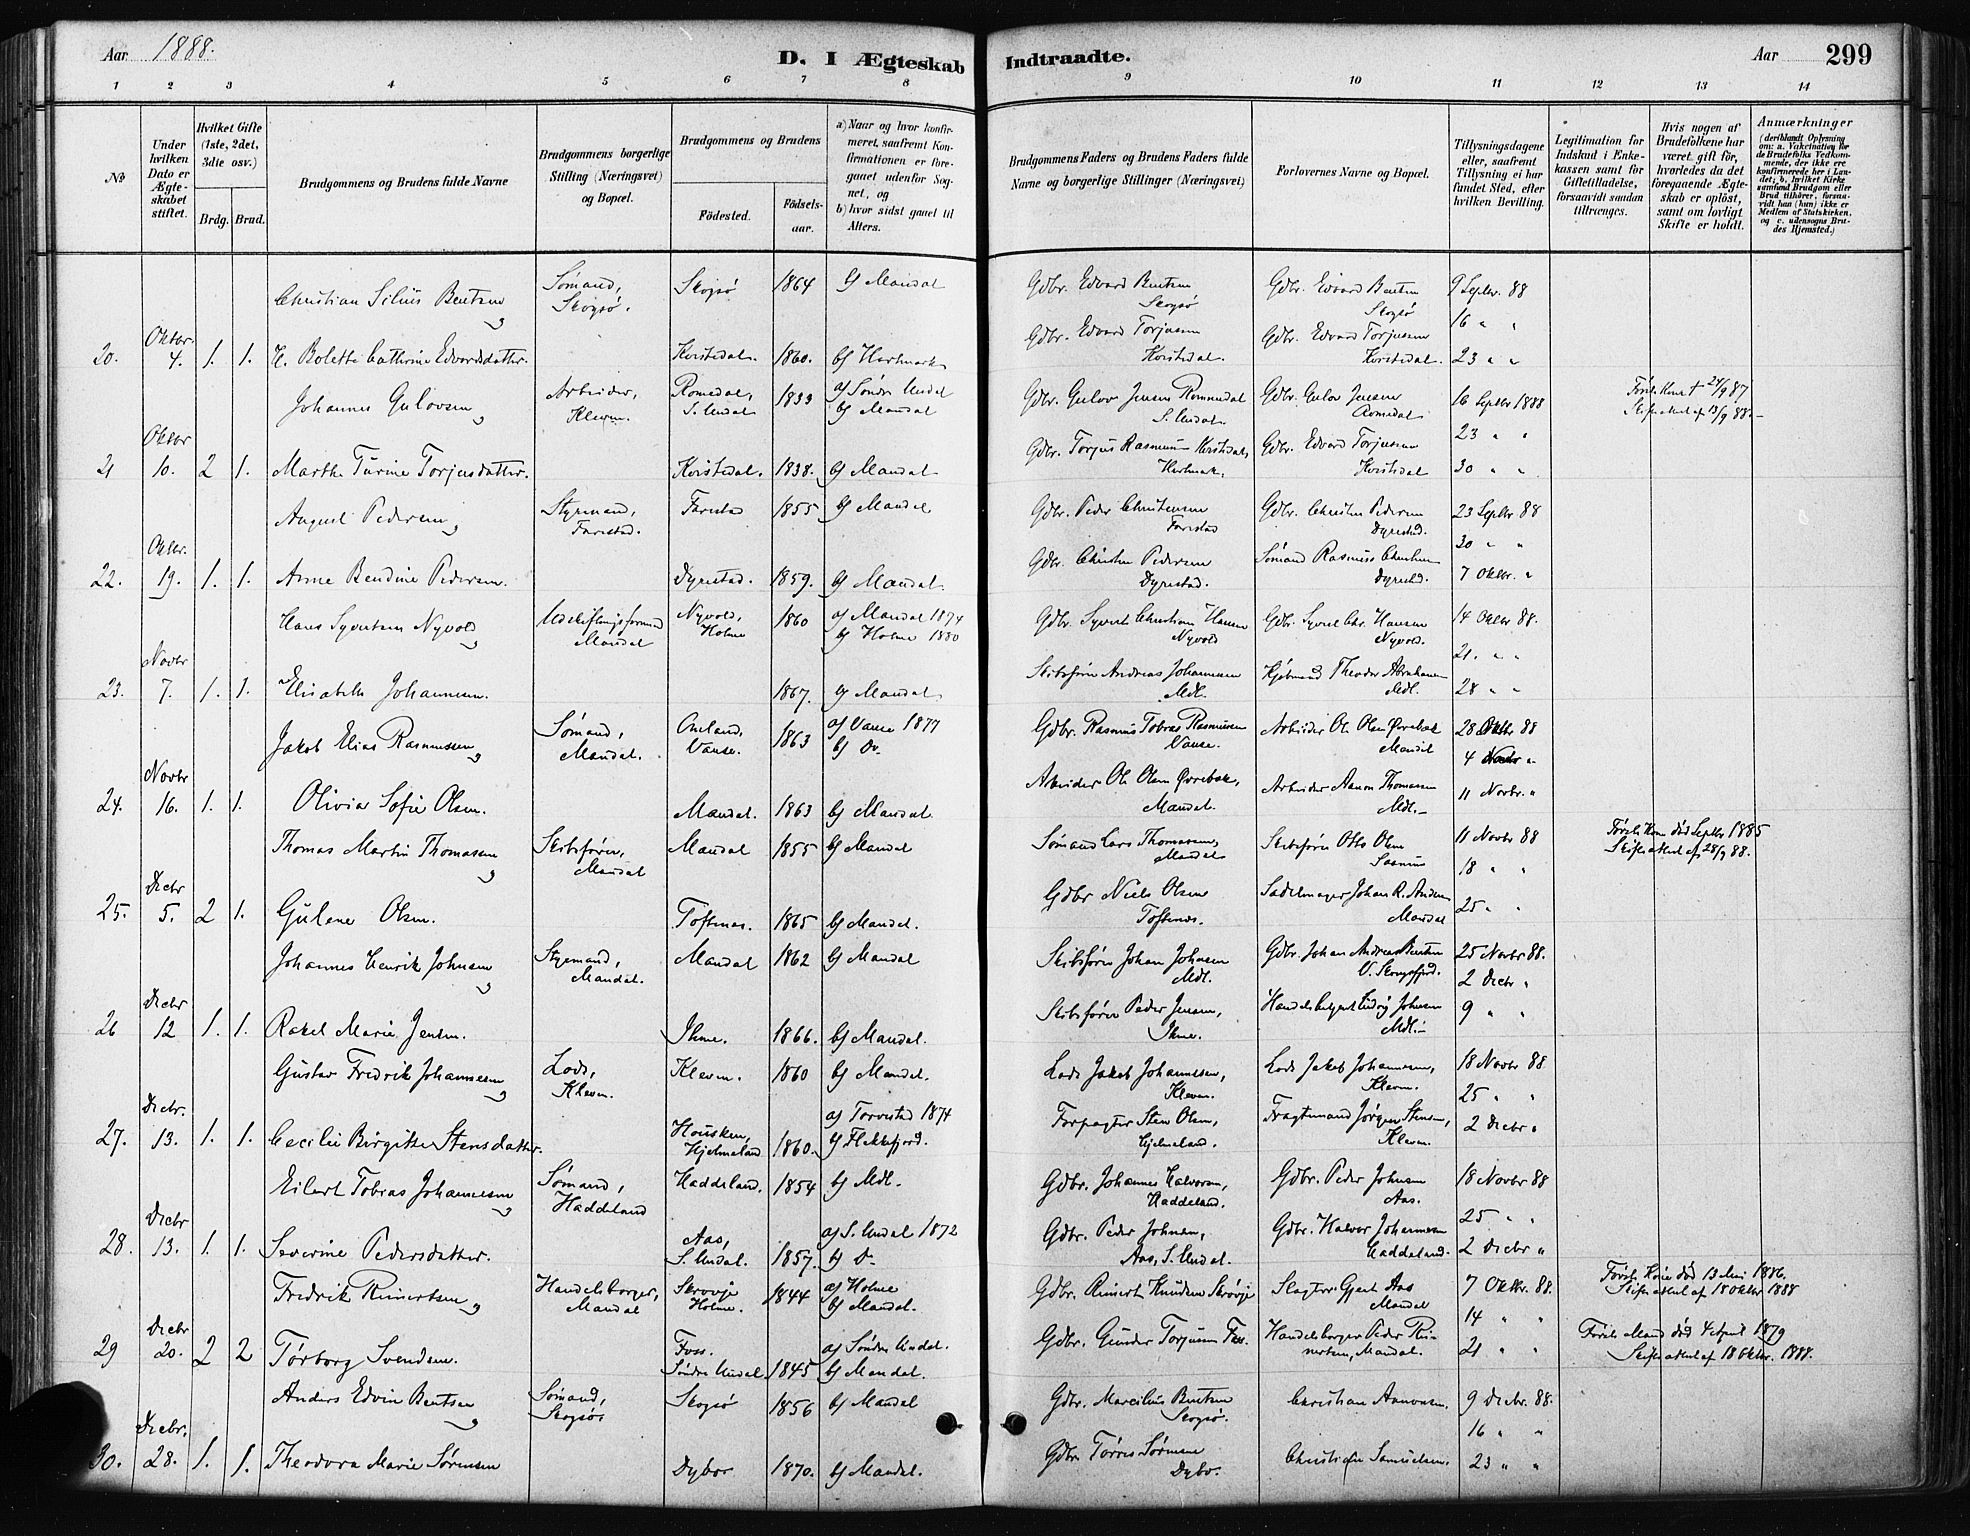 Aar 1888.
D. I Ægteskab Indtraadte.
Aar 299
1 2 3 4 5 6 7 8 9 10 11 12 13 14
No
Under hvilken Dato er Ægteskabet stiftet.
Hvilket Gifte (1ste, 2det, 3die osv.)
Brdg. Brud.
Brudgommens og Brudens fulde Navne
Brudgommens borgerlige Stilling (Næringsvei) og Bopæl.
Brudgommens og Brudens
Fødested. Fødselsaar.
a) Naar og hvor konfirmeret, saafremt Konfirmationen er foregaaet udenfor Sognet, og b) hvor sidst gaaet til Alters.
Brudgommens Faders og Brudens Faders fulde Navne og borgerlige Stillinger (Næringsvei)
Forlovernes Navne og Bopæl.
Tillysningsdagene eller, saafremt Tillysning ei har fundet Sted, efter hvilken Bevilling.
Legitimation for Indskud i Enkekassen samt for Giftetilladelse, forsaavidt saadan tiltrænges.
Hvis nogen af Brudefolkene har været gift før, hvorledes da det foregaaende Ægteskab er opløst, samt om lovligt Skifte er holdt.
Anmærkninger (deriblandt Oplysning om: a. Vakcination for de Brudefolks Vedkommende, der ikke ere konfirmerede her i Landet; b. hvilket Kirkesamfund Brudgom eller Brud tilhører, forsaavidt han (hun) ikke er Medlem af Statskirken, og c. udensogns Brudes Hjemsted.)
Christian Silius Bentsen Sømand, Skogsø. Skogsø 1864 b) Mandal Gdbr. Edvard Bentsen Skogsø Gdbr. Edvard Bentsen Skogsø 9 Septbr. 88
16 " "
20. Oktbr. 4. 1. 1. Bolette Cathrine Edvardsdatter. Kvistedal. 1860. b) Hartmark Gdbr. Edvard Torjusen Kvistedal. Gdbr. Edvard Torjusen Kvistedal. 23 " "
Johannes Gulovsen Arbeider, Kleven. Romedal, S. Undal 1833 a) Søndr Undal b) Mandal Gdbr. Gulov Jensen Romedal S. Undal. Gdbr. Gulov Jensen Romedal 16 Septbr 1888 Første Kone † 24/9 87 Skifteattest af 13/9 88.
23 " "
21 Oktbr 10. 2 1. Marthe Turine Torjusdatter. Kvistedal. 1838. b) Mandal Gdbr. Torjus Rasmussen Kvistedal, Hartmark. Gdbr. Edvard Torjusen Kvistedal 30 " "
August Pedersen Styrmand, Farestad. Farestad 1855 b) Mandal Gdbr. Peder Christensen Farestad Gdbr. Christen Pedersen Dyrestad. 23 Septbr 88
30 " "
22. Oktbr. 19. 1. 1. Anne Bendine Pedersen. Dyrestad. 1859. b) Mandal. Gdbr. Christen Pedersen Dyrestad. Sømand Rasmus Christensen Dyrestd. 7 Oktbr. "
Hans Syvertsen Nyvold Udskiftningsformand Mandal Nyvold, Holme 1860 a) Mandal 1874 b) Holme 1880 Gdbr. Syvert Christian Hansen Nyvold Gdbr. Syvert Chr. Hansen Nyvold. 14 Oktbr 88.
21. " "
23. Novbr 7. 1. 1. Elisabeth Johannesen. 1867. b) Mandal Skibsfører Andreas Johannesen Mdl. Kjøbmand Theodor Abrahamsen Mdl. 28 " "
Jakob Elias Rasmussen Sømand, Mandal. Vanse. 1863 a) Vanse 1877 b) Do. Gdbr. Rasmus Tobias Rasmussen Vanse. Arbeider Ole Olsen Øvrebøk Mandal 28 Oktbr 88
4 Novbr "
24. Novbr 16. 1. 1. Olivia Sofie Olsen. Mandal. 1863 b) Mandal. Arbeider Ole Olsen Øvrebøk, Mandal. Arbeider Aanon Thomassen Mdl. 11 Novbr. "
Thomas Martin Thomassen Skibsfører, Mandal Mandal 1855 b) Mandal Sømand Lars Thomassen, Mandal Skibsfører Otto Olsen 11 Novbr 88 Første Kone død Septbr 1885 Skifteattest af 28/9 88.
18 " "
25. Decbr 5. 2 1. Gulene Olsen. Toftenes. 1865 b) Mandal. Gdbr Niels Olsen Toftenes. Sadelmager Johan R. Andersen Mandal 25 " "
Johannes Henrik Johnsen Styrmand, Mandal. Mandal 1862 b) Mandal Skibsfører Johan Johnsen Mdl. Gdbr. Johan Andreas Bentsen 25 Novbr 88.
2 Decbr "
26 Decbr 12 1. 1. Rakel Marie Jensen. Ihme. 1866. b) Mandal. Skibsfører Peder Jensen, Ihme. Ludvig Johnsen Mdl. 9 " "
Gustav Fredrik Johannesen Lods, Kleven. Kleven. 1860 b) Mandal. Lods Jakob Johannesen, Kleven. Lods Jakob Johannesen, Kleven. 18 Novbr 88
25 " "
27. Decbr. 13. 1. 1. Cecilie Birgitte Stensdatter. Housken, Hjelmeland 1860. a) Torvestad 1874 b) Flekkefjord. Forpagter Sten Olsen, Hjelmeland. Fragtemand Jørgen Stensen, Kleven. 2 Decbr "
Eilert Tobias Johannesen Sømand, Haddeland Haddeland. 1854 b) Mdl. Gdbr. Johannes Halvorsen, Haddeland. Gdbr. Peder Johnsen Aas. 18 Novbr 88
25 " "
28. Decbr 13. 1. 1. Severine Pedersdatter. Aas, S. Undal. 1857. a) S. Undal 1872 b) Do Gdbr. Peder Johnsen, Aas, S. Undal. Gdbr. Halvor Johannesen Haddeland. 2 Decbr "
Fredrik Reinertsen Handelsborger, Mandal Skrøvje Holme. 1844 a) Holme b) Mandal. Gdbr. Reinert Knudsen Skrøvje Slagter Gjert Aas Mandal 7 Oktbr. 88. Første Kone død 13 Mai 1886. Skifteattest af 18 Oktbr 1888
14 " "
29 Decbr 20. 2 2 Tørborg Svendsen. Foss. Søndre Undal 1845 a) Søndre Undal. b) Mandal. Gdbr. Gunder Torjusen Foss. Handelsborger Peder Reinertsen, Mandal. 21 " " Første Mand død 4 April 1879 Skifteattest af 18 Oktbr. 1888.
Anders Edvin Bentsen Sømand, Skogsø Skogsø 1856 b) Mandal Gdbr. Marcelius Bentsen Skogsø. Christian Aanonsen. 9 Decbr. 88.
16 " "
30. Decbr. 28. 1. 1. Theodora Marie Sørensen Dybo 1870. b) Mandal. Gdbr. Tørres Sørensen Dybo. Christian Samuelsen. 23 " "